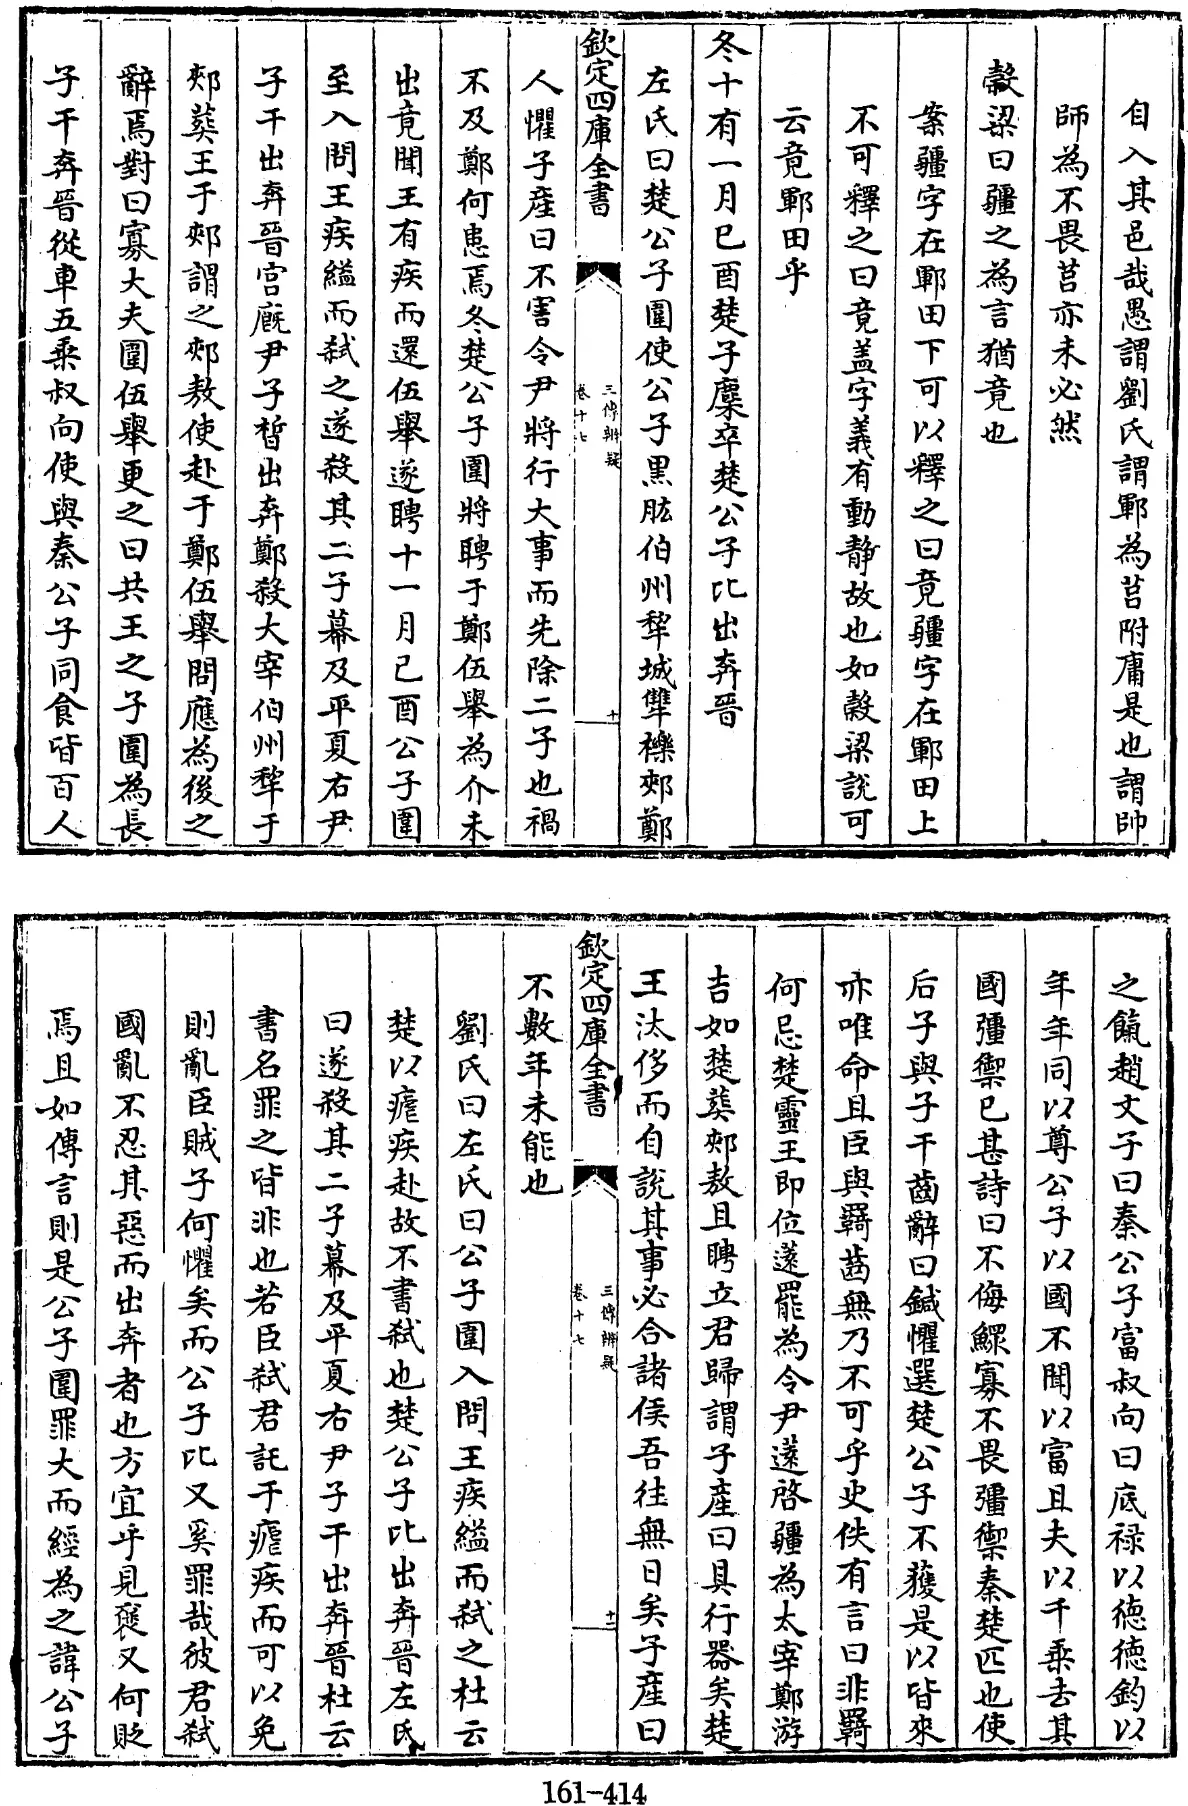 自入其邑哉愚謂劉氏謂鄆為莒附庸是也謂帥
師為不畏莒亦未必然
穀梁曰疆之為言猶竟也
案疆字在鄆田下可以釋之曰竟疆字在鄆田上
不可釋之曰竟盖字義有動静故也如穀梁說可
云竟鄆田乎
冬十有一月已酉楚子麇卒楚公子比出奔晉
左氏曰楚公子圍使公子黒肱伯州犂城犨櫟郟鄭
欽定四庫全書
三傳辨疑
卷十七
十
人懼子産曰不害令尹將行大事而先除二子也禍
不及鄭何患焉冬楚公子圍將聘于鄭伍舉為介未
出竟聞王有疾而還伍舉遂聘十一月已酉公子圍
至入問王疾縊而弑之遂殺其二子幕及平夏右尹
子干出奔晉宫廐尹子晳出奔鄭殺大宰伯州犂于
郟葬王于郟謂之郟敖使赴于鄭伍舉問應為後之
辭焉對曰寡大夫圍伍舉更之曰共王之子圍為長
子干奔晉從車五乗叔向使與秦公子同食皆百人
之餼趙文子曰秦公子富叔向曰底禄以徳徳鈞以
年年同以尊公子以國不聞以富且夫以千乗去其
國彊禦已甚詩曰不侮鰥寡不畏彊禦秦楚匹也使
后子與子干齒辭曰鍼懼選楚公子不獲是以皆來
亦唯命且臣與羇齒無乃不可乎史佚有言曰非羇
何忌楚靈王即位薳罷為令尹薳啓疆為太宰鄭游
吉如楚葬郟敖且聘立君歸謂子産曰具行器矣楚
王汰侈而自說其事必合諸侯吾往無日矣子産曰
欽定四庫全書
三傳辨疑
卷十七
十一
不數年未能也
劉氏曰左氏曰公子圍入問王疾縊而弑之杜云
楚以瘧疾赴故不書弑也楚公子比出奔晉左氏
曰遂殺其二子幕及平夏右尹子干出奔晉杜云
書名罪之皆非也若臣弑君託于瘧疾而可以免
則亂臣賊子何懼矣而公子比又奚罪哉彼君弑
國亂不忍其惡而出奔者也方宜乎見褒又何貶
焉且如傳言則是公子圍罪大而經為之諱公子
161-414